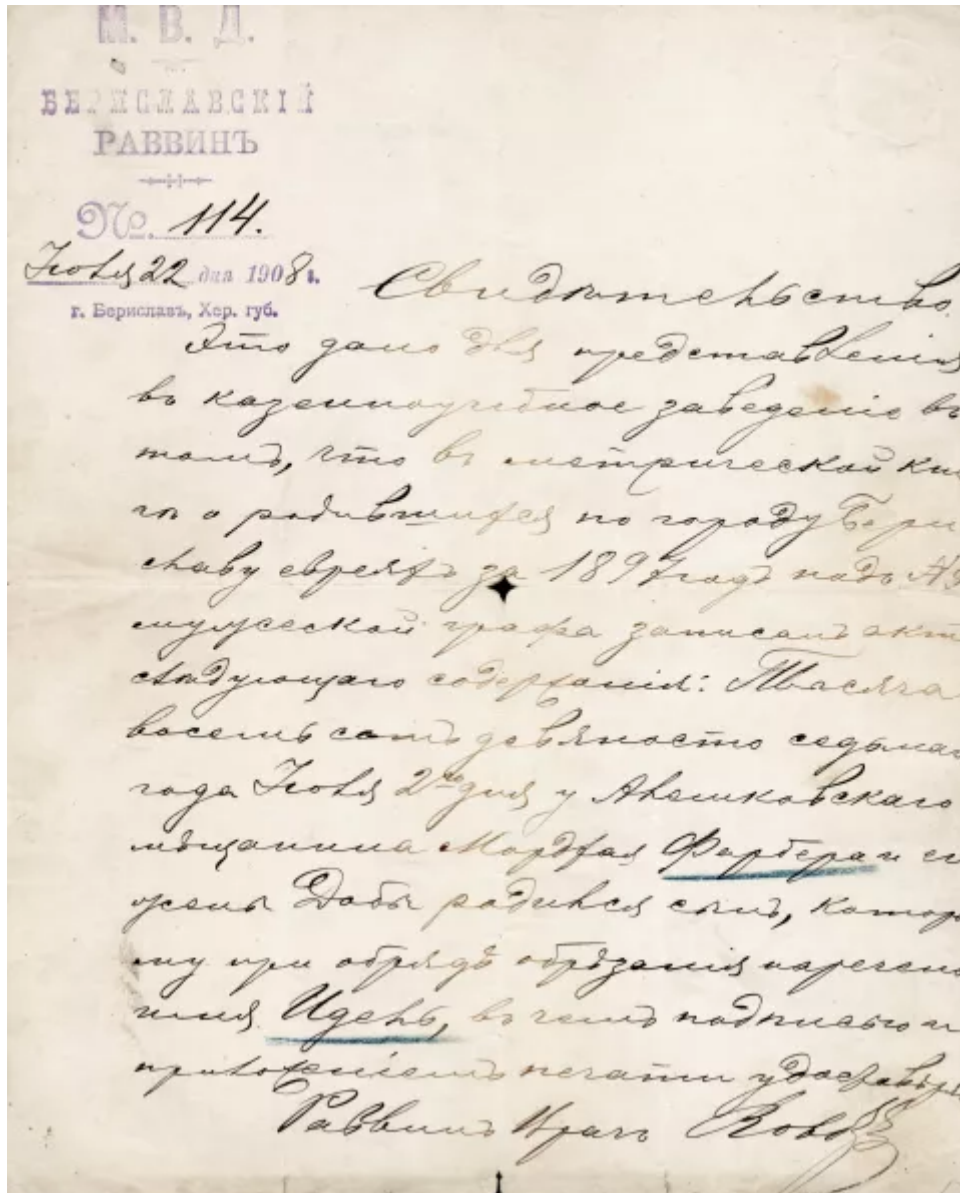 М. В. Д.
БЕРИСЛАВСКІЙ
РАВВИНЪ
№. 114.
Іюля 22 дня 1908 г.
г. Бериславъ, Хер. губ.
Свидѣтельство.
Это дано для представленія
въ казенноучебное заведеніе въ
томъ, что въ метрической кни
гѣ о родившихся по городу Бери
славу евреяхъ за 1897 годъ подъ №
мужеской графа записанъ актъ
слѣдующаго содержанія: Тысяча
восемьсотъ девяносто седьмаго
года Іюля 2го дня у Алешковскаго
мѣщанина Мордхая Фарбера и ег
жены Добы родился сынъ, котор
му при обрядѣ обрѣзанія наречено
имя Идель, въ чемъ подписью и
приложеніемъ печати удостовѣря
Раввинъ Врачъ